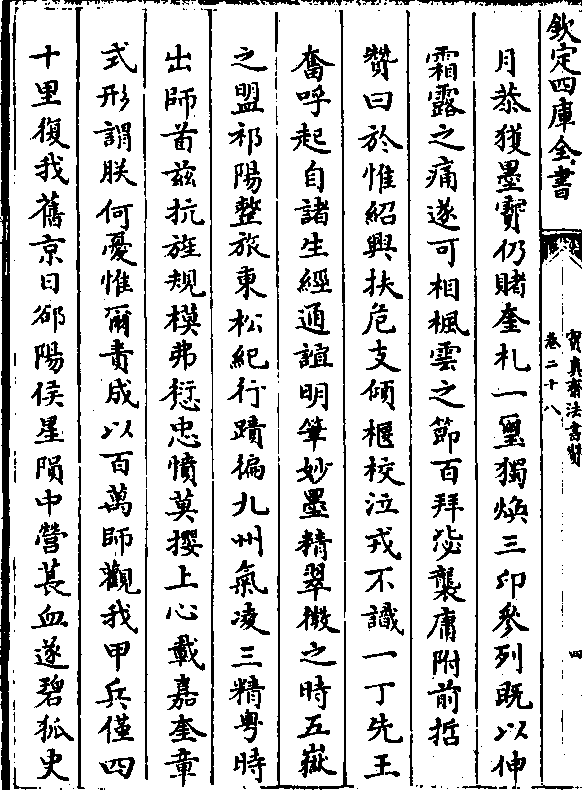 欽定四庫全書
寶真齋法書贊
卷二十八
四
月恭獲墨寶仍賭奎札一璽獨煥三印參列既以伸
霜露之痛遂可相楓雲之節百拜謐襲庸附前哲
贊曰於惟紹興扶危支傾櫃校泣戎不識一丁先王
奮呼起自諸生經通誼明筆妙墨精翠微之時五嶽
之盟祁陽整旅東松紀行蹟徧九州氣凌三精粤時
出師首兹抗旌規模弗愆忠憤莫攖上心載嘉奎章
式形謂朕何憂惟爾責成以百萬師觀我甲兵僅四
十里復我舊京日䣌陽侯星隕中營萇血遂碧狐史